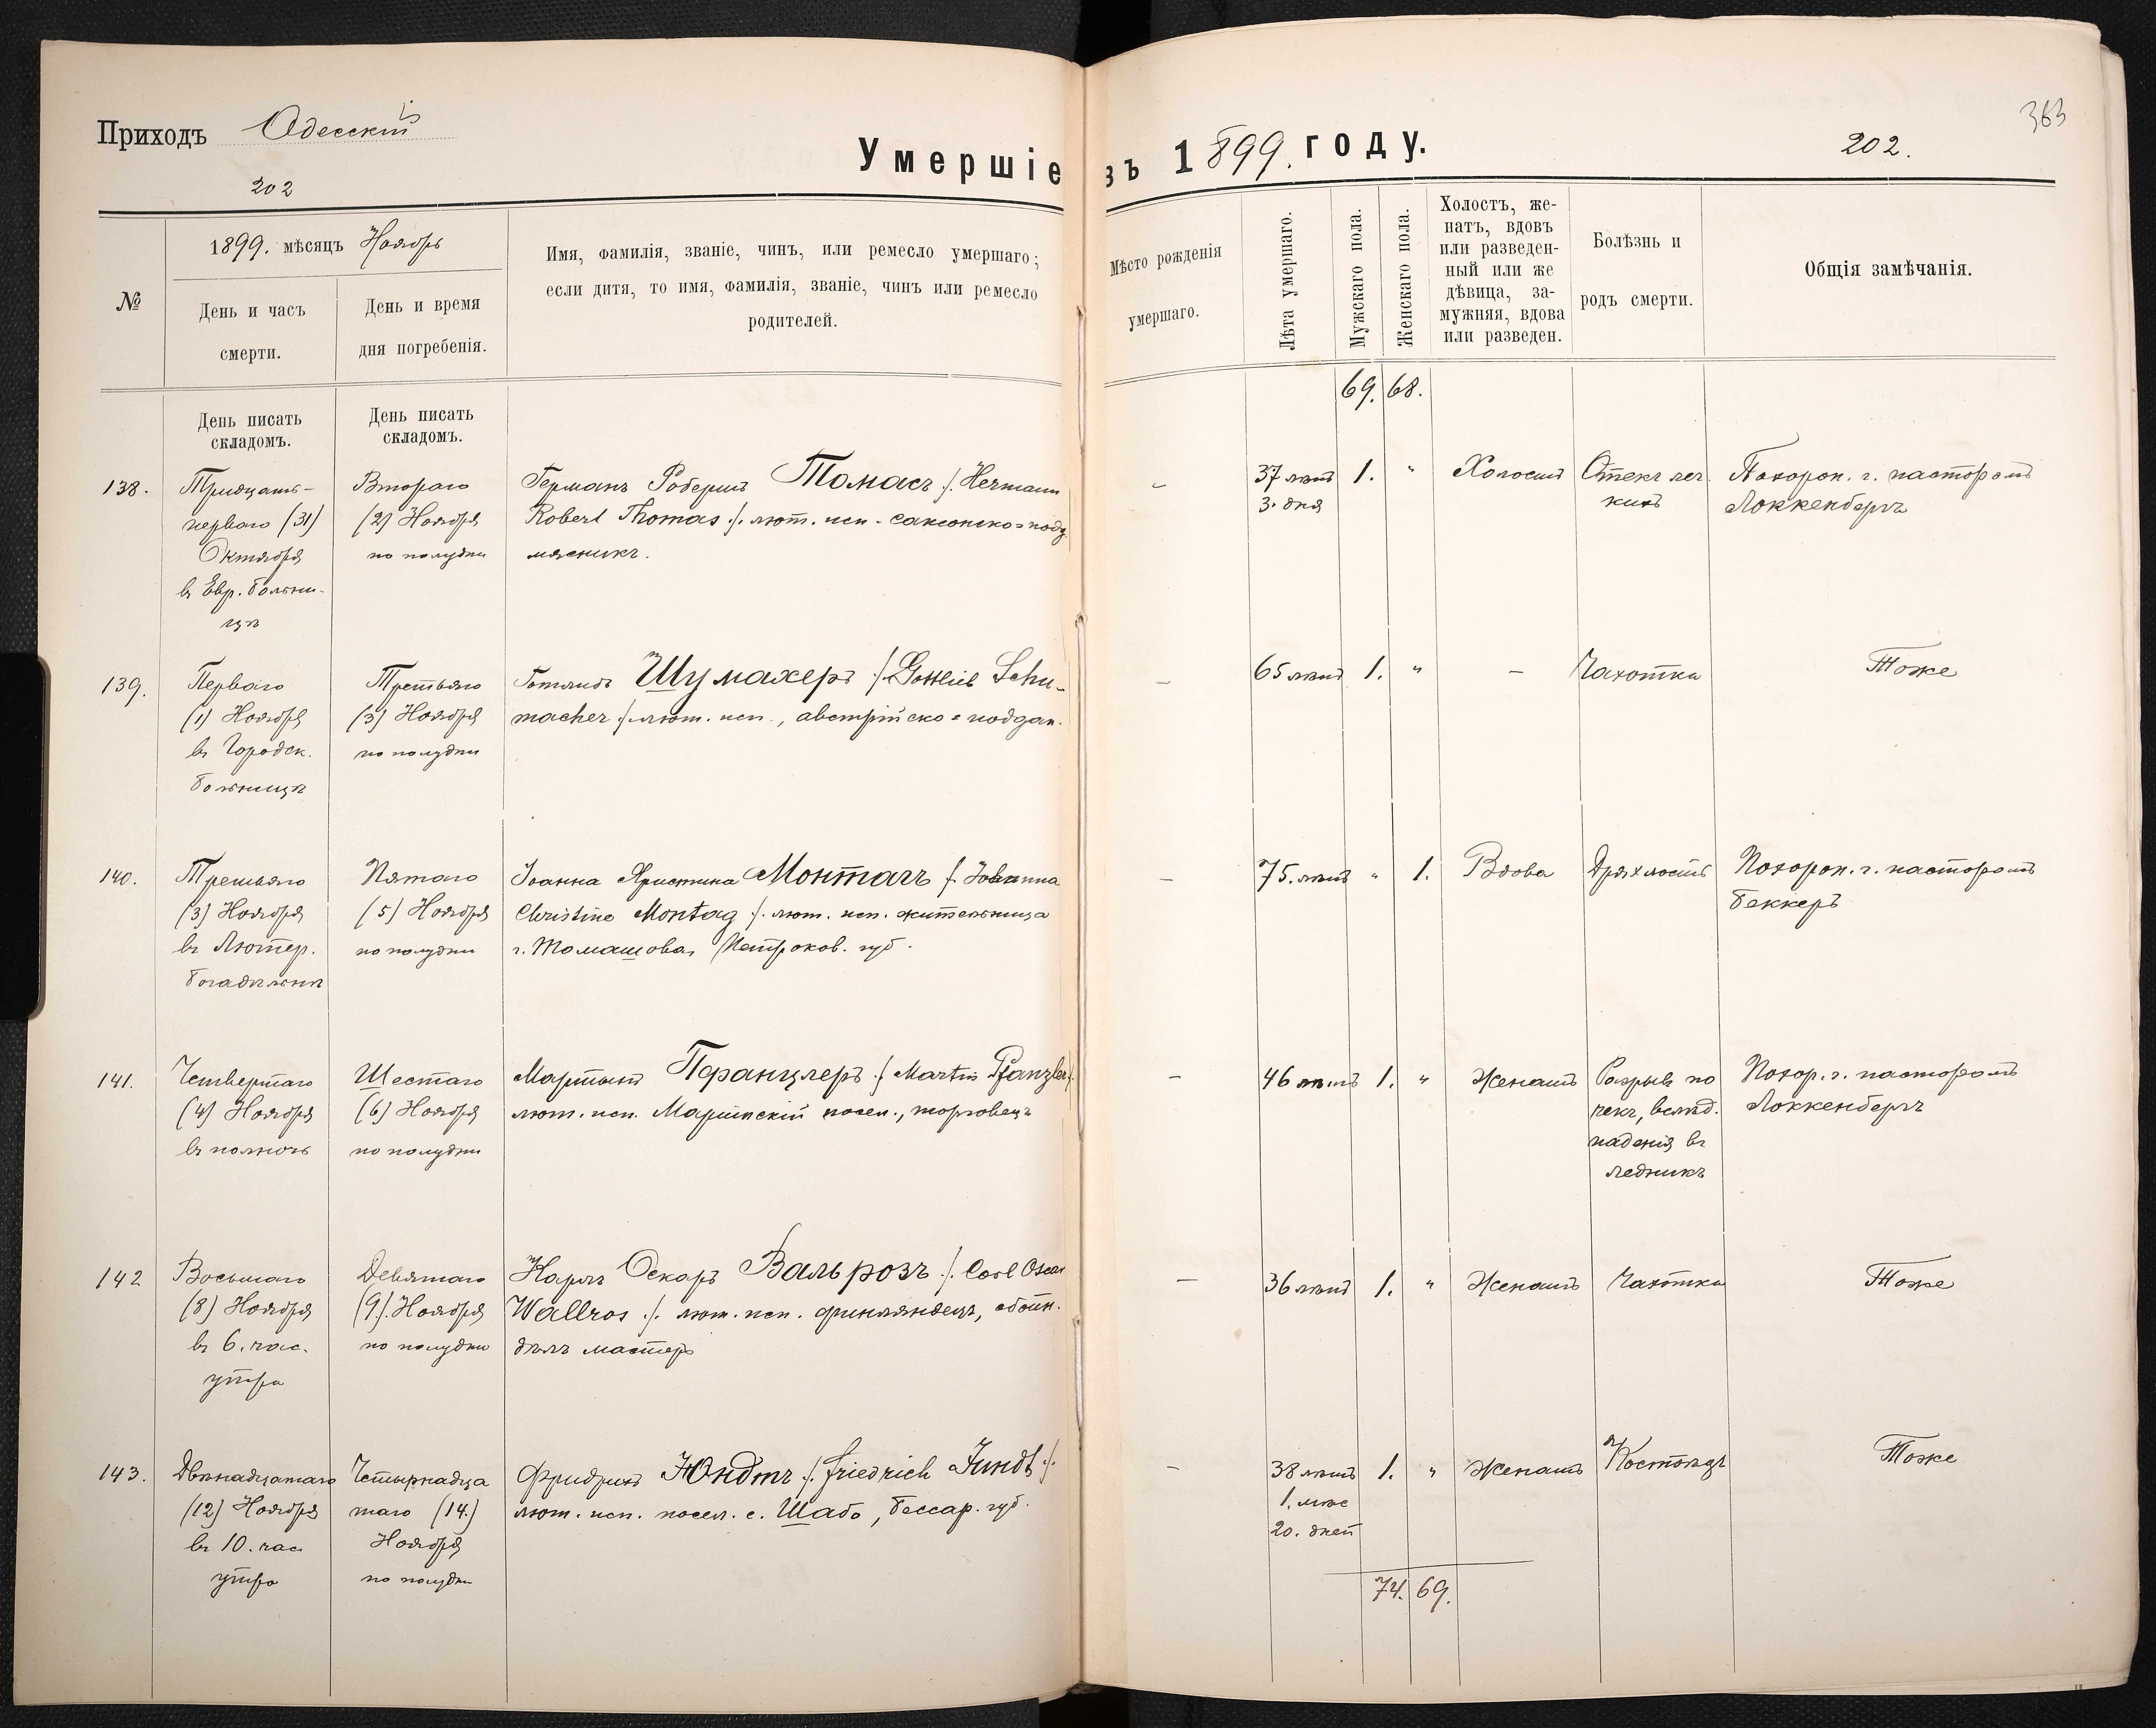 Приходъ Одесскій
202
Умершіе
въ 1899. году.
202.
363
№
1899. мѣсяцъ Ноябрь
День и часъ
смерти.
День и время
дня погребенія.
Имя, фамилія, званіе, чинъ, или ремесло умершаго;
если дитя, то имя, фамилія, званіе, чинъ или ремесло
родителей.
Мѣсто рожденія
умершаго.
Лѣта умершаго.
Мужскаго пола.
Женскаго пола.
Холостъ, же-
натъ, вдовъ
или разведен-
ный или же
дѣвица, за-
мужняя, вдова
или разведен.
Болѣзнь и
родъ смерти.
Общія замѣчанія.
День писать
складомъ.
День писать
складомъ.
69. 68.
138.
Тридцать-
перваго (31)
Октября
въ Евр. больни-
цѣ
Втораго
(2) Ноября
по полудни
Германъ Робертъ Томасъ /. Hermann
Robert Thomas ./. лют. исп. саксонско=подд.
мясникъ.
–
37 лѣтъ
3. дня
1.
"
Холостъ
Отекъ лег
кихъ
Похорон. г. пасторомъ
Локкенбергъ
139.
Перваго
(1) Ноября
въ Городск.
больницѣ
Третьяго
(3) Ноября
по полудни
Готлибъ Шумахеръ ./. Gottlieb Schu-
macher ./. лют. исп., австрійско=поддан.
–
65 лѣтъ
1.
"
–
Чахотка
Тоже
140.
Третьяго
(3) Ноября
въ Лютер.
богадѣльнѣ
Пятаго
(5) Ноября
по полудни
Іоанна Христина Монтагъ /. Johanna
Christine Montag ./. лют. исп. жительница
г. Томашова, Петроков. губ.
–
75. лѣтъ
"
1.
Вдова
Дряхлость
Похорон. г. пасторомъ
Беккеръ
141.
Четвертаго
(4) Ноября
въ полночь
Шестаго
(6) Ноября
по полудни
Мартынъ Пфанцлеръ ./. Martin Pfanzler ./.
лют. исп. Маріинскій посел., торговецъ
–
46 лѣтъ
1.
"
Женатъ
Разрывъ по
чекъ, вслѣд.
паденія въ
ледникъ
Похор. г. пасторомъ
Локкенбергъ
142
Восьмаго
(8) Ноября
въ 6. час.
утра
Девятаго
(9). Ноября
по полудни
Карлъ Оскаръ Вальрозъ ./. Carl Oscar
Wallros ./. лют. исп. финляндецъ, обойн.
дѣлъ мастеръ
–
36 лѣтъ
1.
"
Женатъ
Чахотка
Тоже
143.
Двѣнадцатаго
(12) Ноября
въ 10. час
утра
Четырнадца
таго (14.)
Ноября
по полудни
Фридрихъ Юндтъ ./. Friedrich Jundt ./.
лют. исп. посел. с. Шабо, Бессар. губ.
–
38 лѣтъ
1. мѣс
20. дней
1.
"
Женатъ
Костоѣда
Тоже
74. 69.